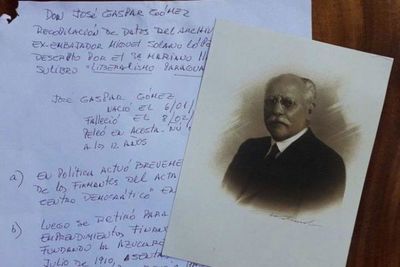 DON JOSÉ GASPAR GÓMEZ
RECOPILACIÓN DE DATOS DEL ARCHIV
EX-EMBAJADOR MIGUEL SOLANO LÓPE
DESCRIPTO POR EL DR MARIANO
SU LIBRO "LIBERALISMO PARAGUA
JOSE GASPAR GÓMEZ
NACIÓ EL 6/01/
FALLECIÓ EL 8/02/
PELEÓ EN ACOSTA-ÑU
A LOS 12 AÑOS
a) EN POLÍTICA ACTUÓ BREVEME
DE LOS FIRMANTES DEL ACTA
CENTRO DEMOCRÁTICO" EN
b) LUEGO SE RETIRÓ PARA
EMPRENDIMIENTOS FINAN
FUNDANDO LA AZUCARE
JULIO DE 1910, ASENTA